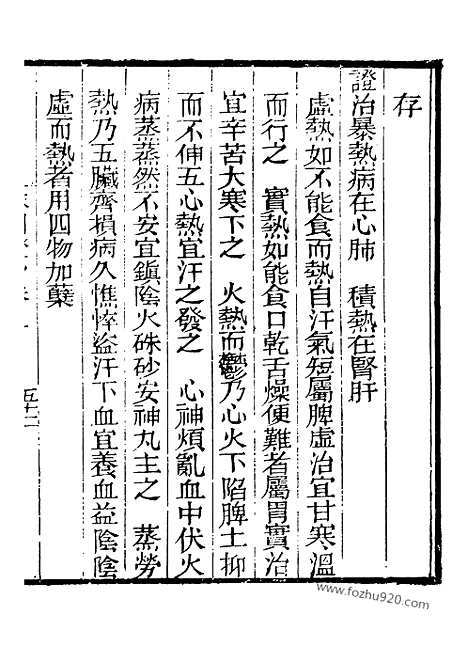 存
證治暴熱病在心肺　積熱在腎肝
虛熱如不能食而熱自汗氣短屬脾虛治宜甘寒溫
而行之　實熱如能食口乾舌燥便難者屬胃實治
宜辛苦大寒下之　火熱而鬱乃心火下陷脾土抑
而不伸五心熱宜汗之發之　心神煩亂血中伏火
病蒸蒸然不安宜鎭陰火硃砂安神丸主之　蒸勞
熱乃五臟齊損病久憔悴盜汗下血宜養血益陰陰
虛而熱者用四物加蘗
五十二
www.fozhu920.com